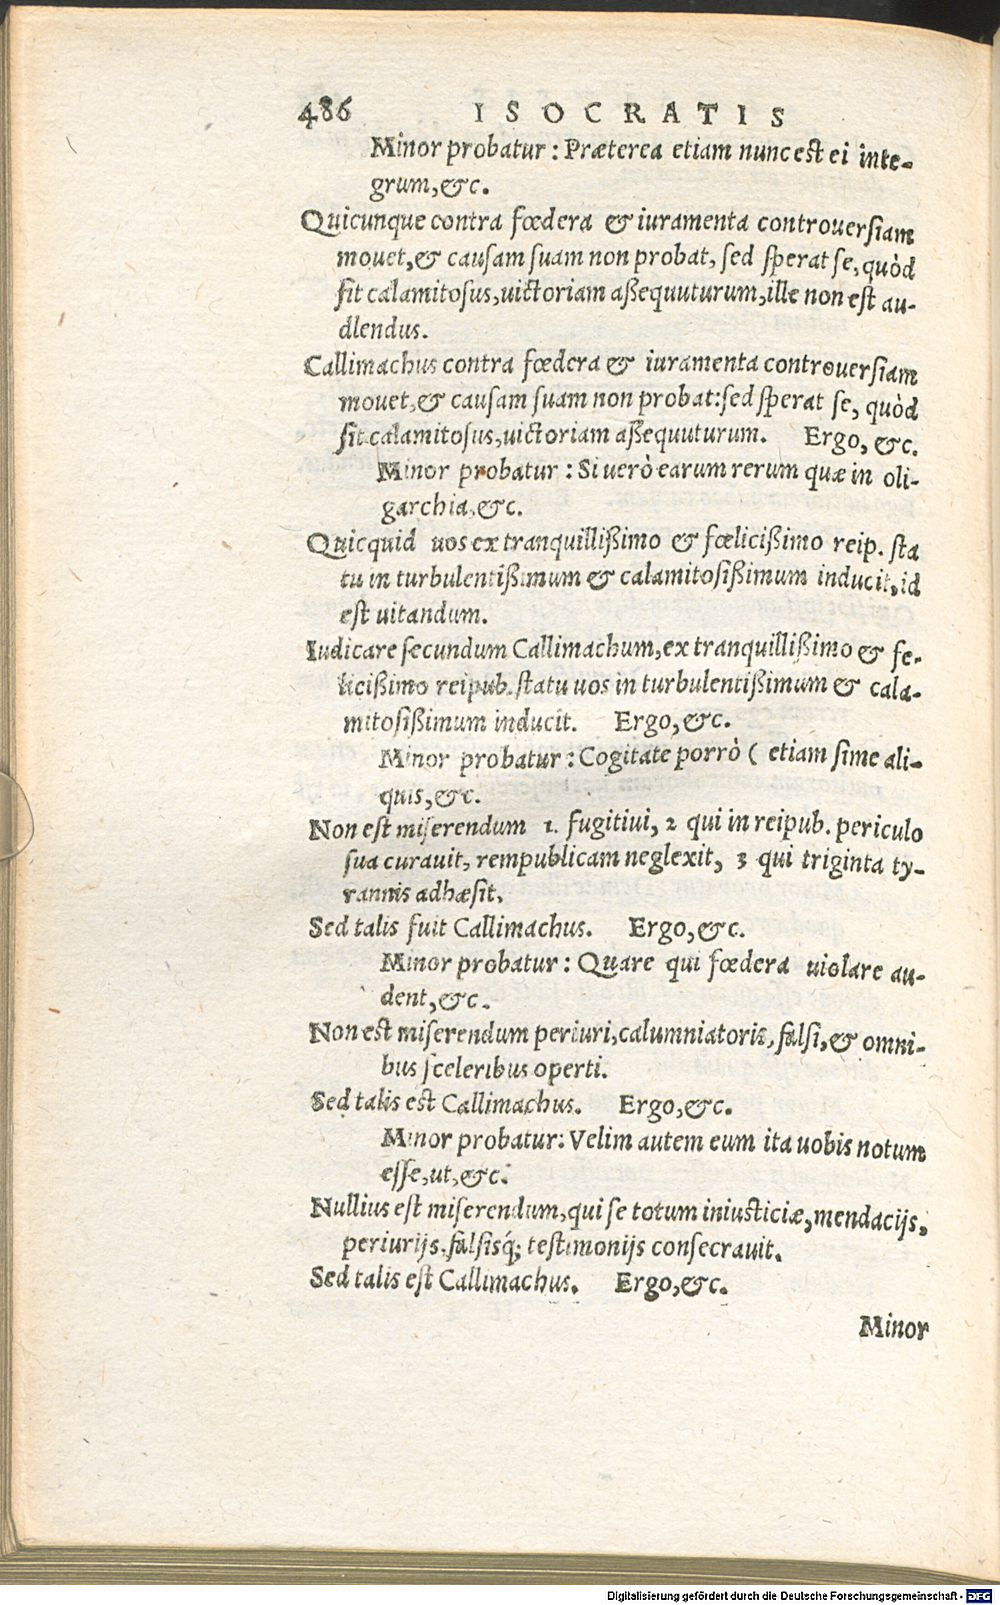 486 ISOCRATIS
Minor probatur: Præterea etiam nunc est ei inte-
grum, &c.
Quicunque contra fœdera & iuramenta controuersiam
mouet, & causam suam non probat, sed sperat se, quòd
sit calamitosus, uictoriam aßequuturum, ille non est au-
dlendus.
Callimachus contra fœdera & iuramenta controuersiam
mouet, & causam suam non probat: sed sperat se, quòd
sit calamitosus, uictoriam aßequuturum. Ergo, &c.
Minor probatur: Si uerò earum rerum quæ in oli-
garchia, &c.
Quicquid uos ex tranquillißimo & fœlicißimo reip. sta
tu in turbulentißimum & calamitosißimum inducit, id
est uitandum.
Iudicare secundum Callimachum, ex tranquillißimo & fe-
licißimo reipub. statu uos in turbulentißimum & cala-
mitosißimum inducit. Ergo, &c.
Minor probatur: Cogitate porrò ( etiam sime ali-
quis, &c.
Non est miserendum 1. fugitiui, 2 qui in reipub. periculo
sua curauit, rempublicam neglexit, 3 qui triginta ty-
rannis adhæsit.
Sed talis fuit Callimachus. Ergo, &c.
Minor probatur: Quare qui fœdera uiolare au-
dent, &c.
Non est miserendum periuri, calumniatoris, falsi, & omni-
bus sceleribus operti.
Sed talis est Callimachus. Ergo, &c.
Minor probatur: Velim autem eum ita uobis notum
esse, ut, &c.
Nullius est miserendum, qui se totum iniusticiæ, mendacijs,
periurijs, falsisq́; testimonijs consecrauit.
Sed talis est Callimachus. Ergo, &c.
Minor
Digitalisierung gefördert durch die Deutsche Forschungsgemeinschaft - DFG